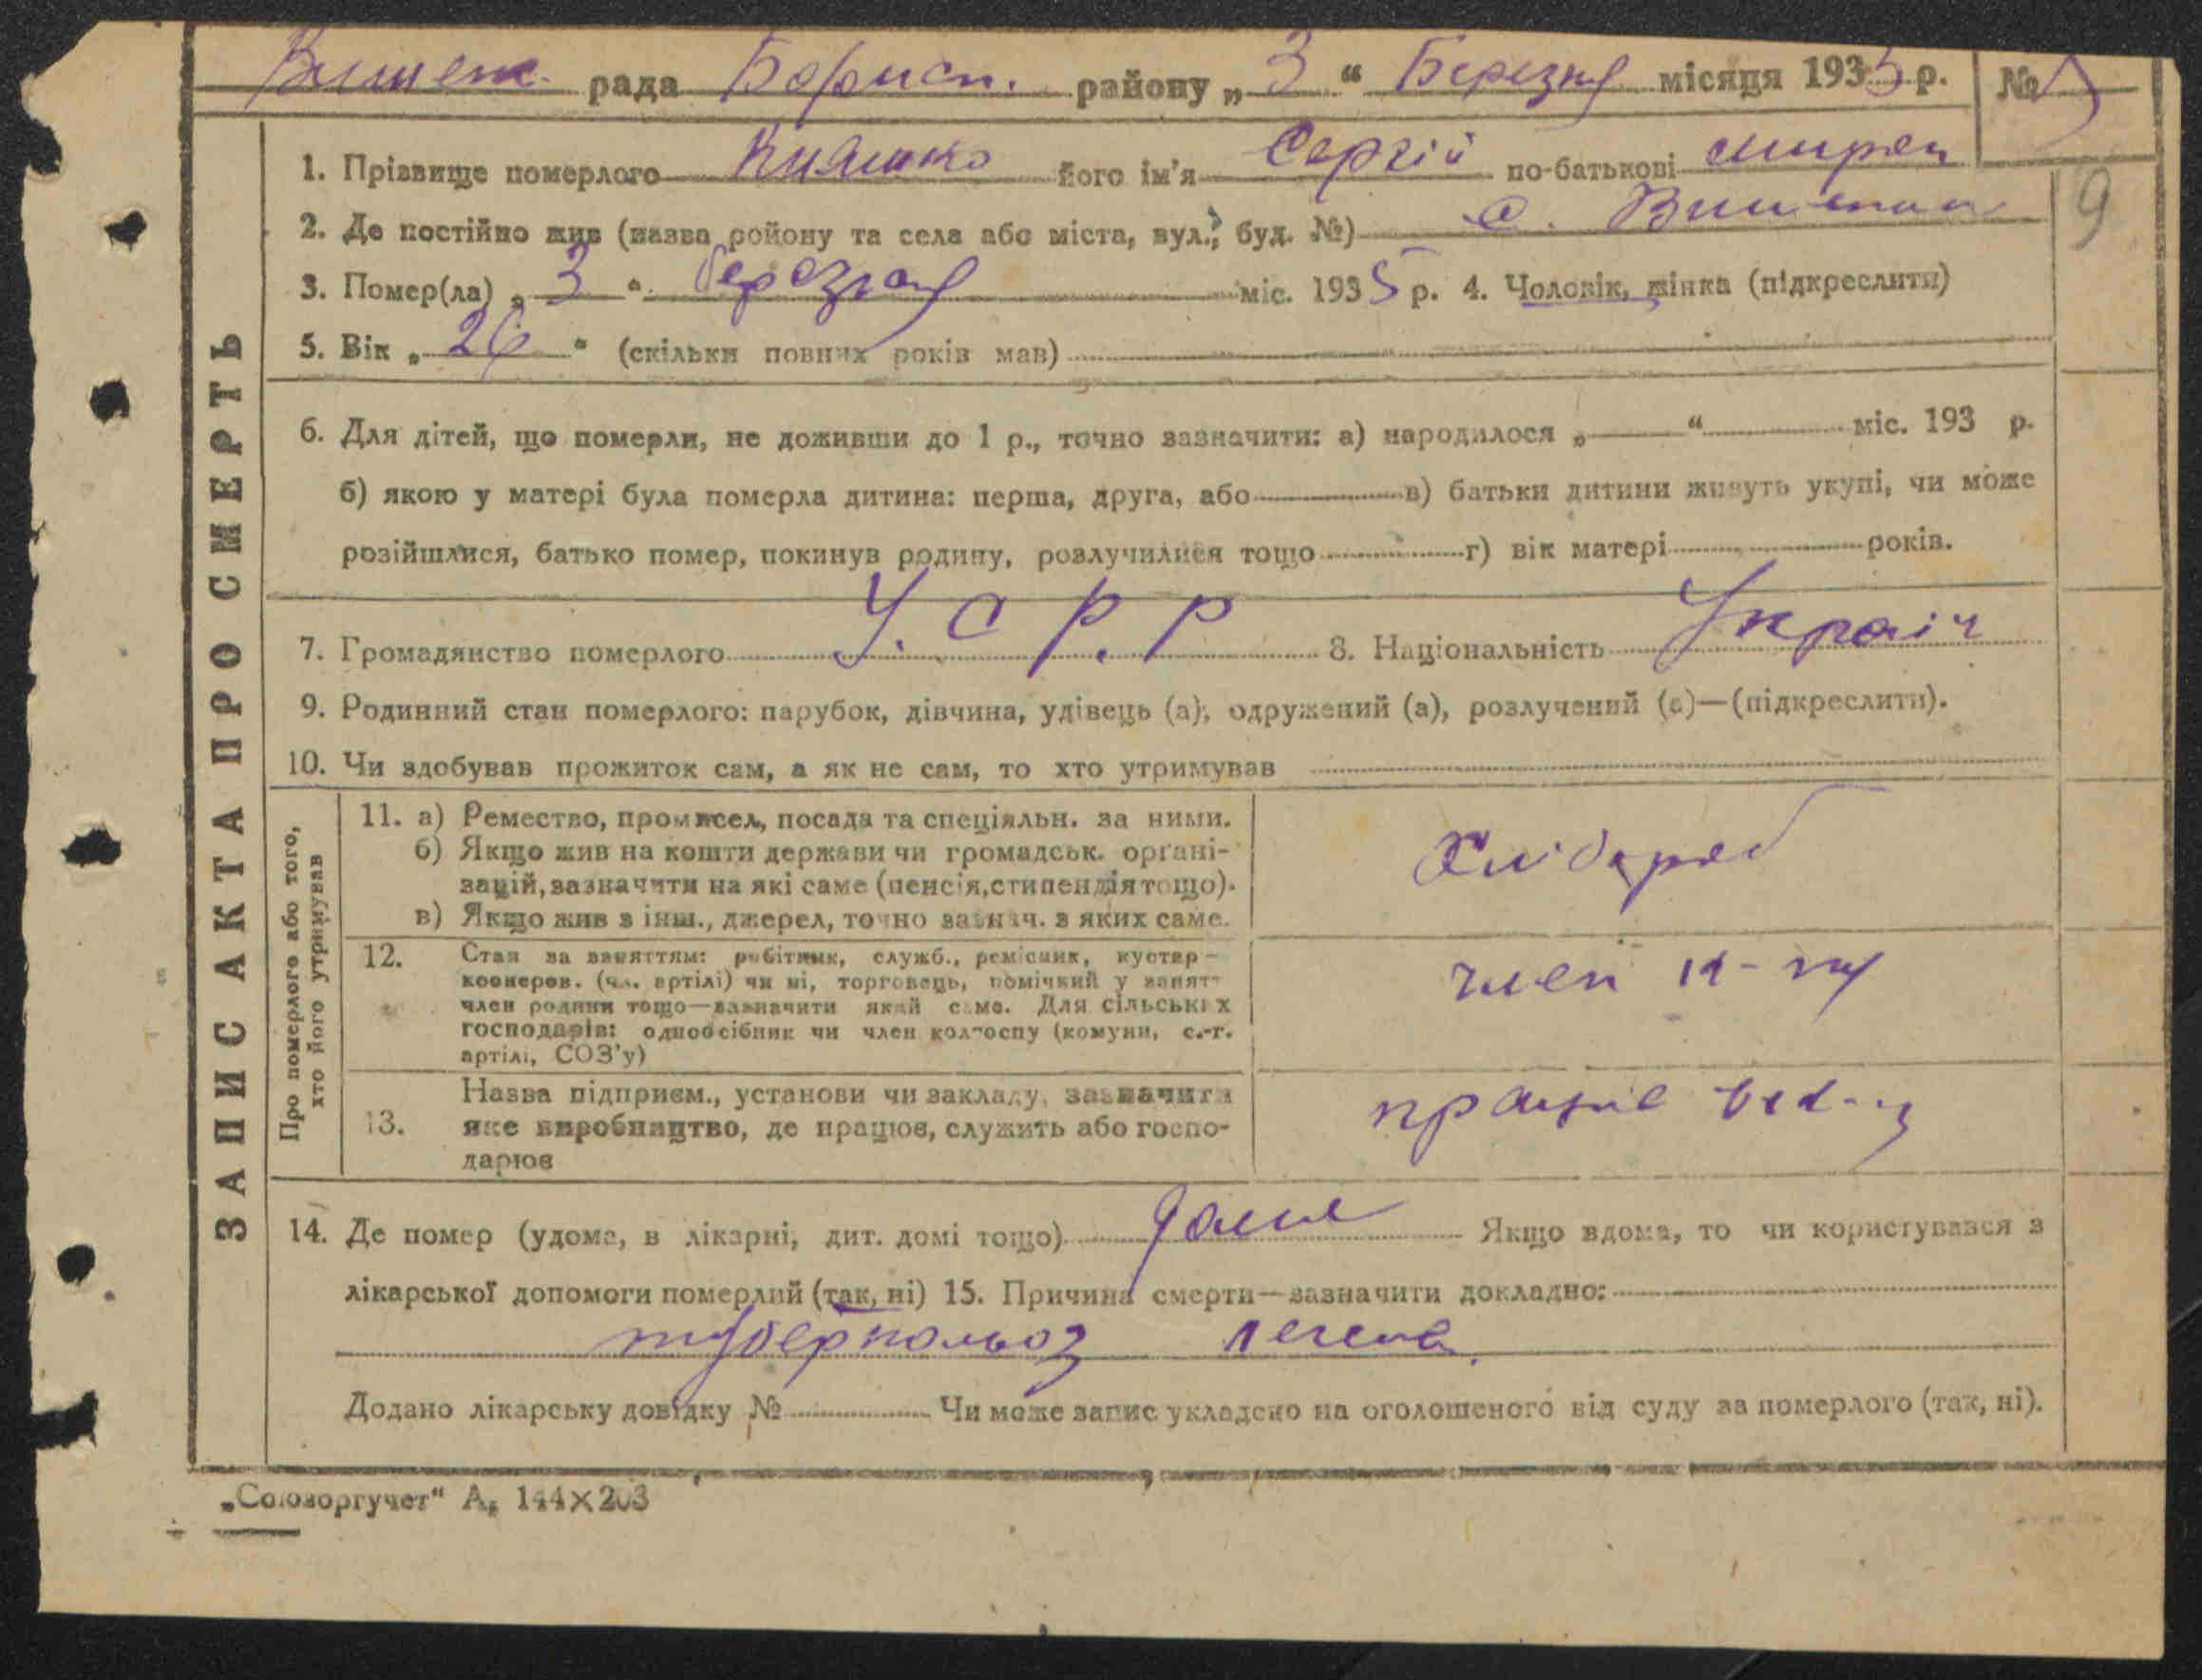 Вишенк. рада Борисп. району „3“ Березня місяця 1935 р. №
1. Прізвище померлого Кияшко його ім'я Сергій по-батькові
2. Де постійно жив (назва ройону та села або міста, вул., буд. №) с. Вишеньки
3. Помер(ла) „3“ березня міс. 1935 р. 4. Чоловік, жінка (підкреслити)
5. Вік „26“ (скільки повних років мав)
9
6. Для дітей, що померли, не доживши до 1 р., точно зазначити: а) народилося „ “ міс. 193 р.
б) якою у матері була померла дитина: перша, друга, або в) батьки дитини живуть укупі, чи може
розійшлися, батько помер, покинув родину, розлучилися тощо г) вік матері років.
7. Громадянство померлого У.С.Р.Р 8. Національність Україн
9. Родинний стан померлого: парубок, дівчина, удівець (а), одружений (а), розлучений (а)—(підкреслити).
10. Чи здобував прожиток сам, а як не сам, то хто утримував
Про померлого або того,
хто його утримував
11. а) Ремество, промисел, посада та спеціяльн. за ними.
б) Якщо жив на кошти держави чи громадськ. органі-
зацій, зазначити на які саме (пенсія, стипендія тощо).
в) Якщо жив з інш., джерел, точно зазнач. з яких саме.
Хлібороб
12. Стан за заняттям: робітник, служб., ремісник, кустар-
кооперов. (чл. артілі) чи ні, торговець, помічний у занятт
член родини тощо—зазначити який саме. Для сільських
господарів: одноосібник чи член колгоспу (комуни, с.-г.
артілі, СОЗ'у)
член к-гу
13. Назва підприєм., установи чи закладу, зазначити
яке виробництво, де працює, служить або госпо-
дарює
працює
14. Де помер (удома, в лікарні, дит. домі тощо) дома Якщо вдома, то чи користувався з
лікарської допомоги померлий (так, ні) 15. Причина смерти—зазначити докладно:
туберкольоз легень
Додано лікарську довідку № Чи може запис укладено на оголошеного від суду за померлого (так, ні).
ЗАПИС АКТА ПРО СМЕРТЬ
„Союзоргучет“ А₅ 144×203